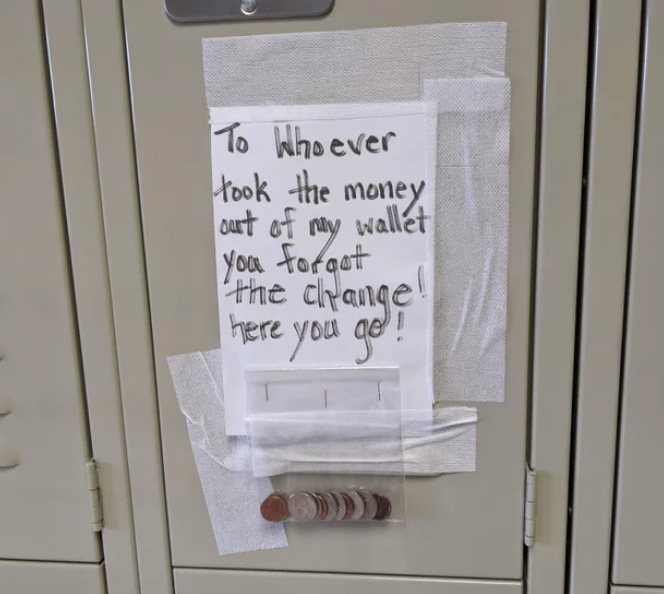 To Whoever
took the money
out of my wallet
you forgot
the change!
here you go!